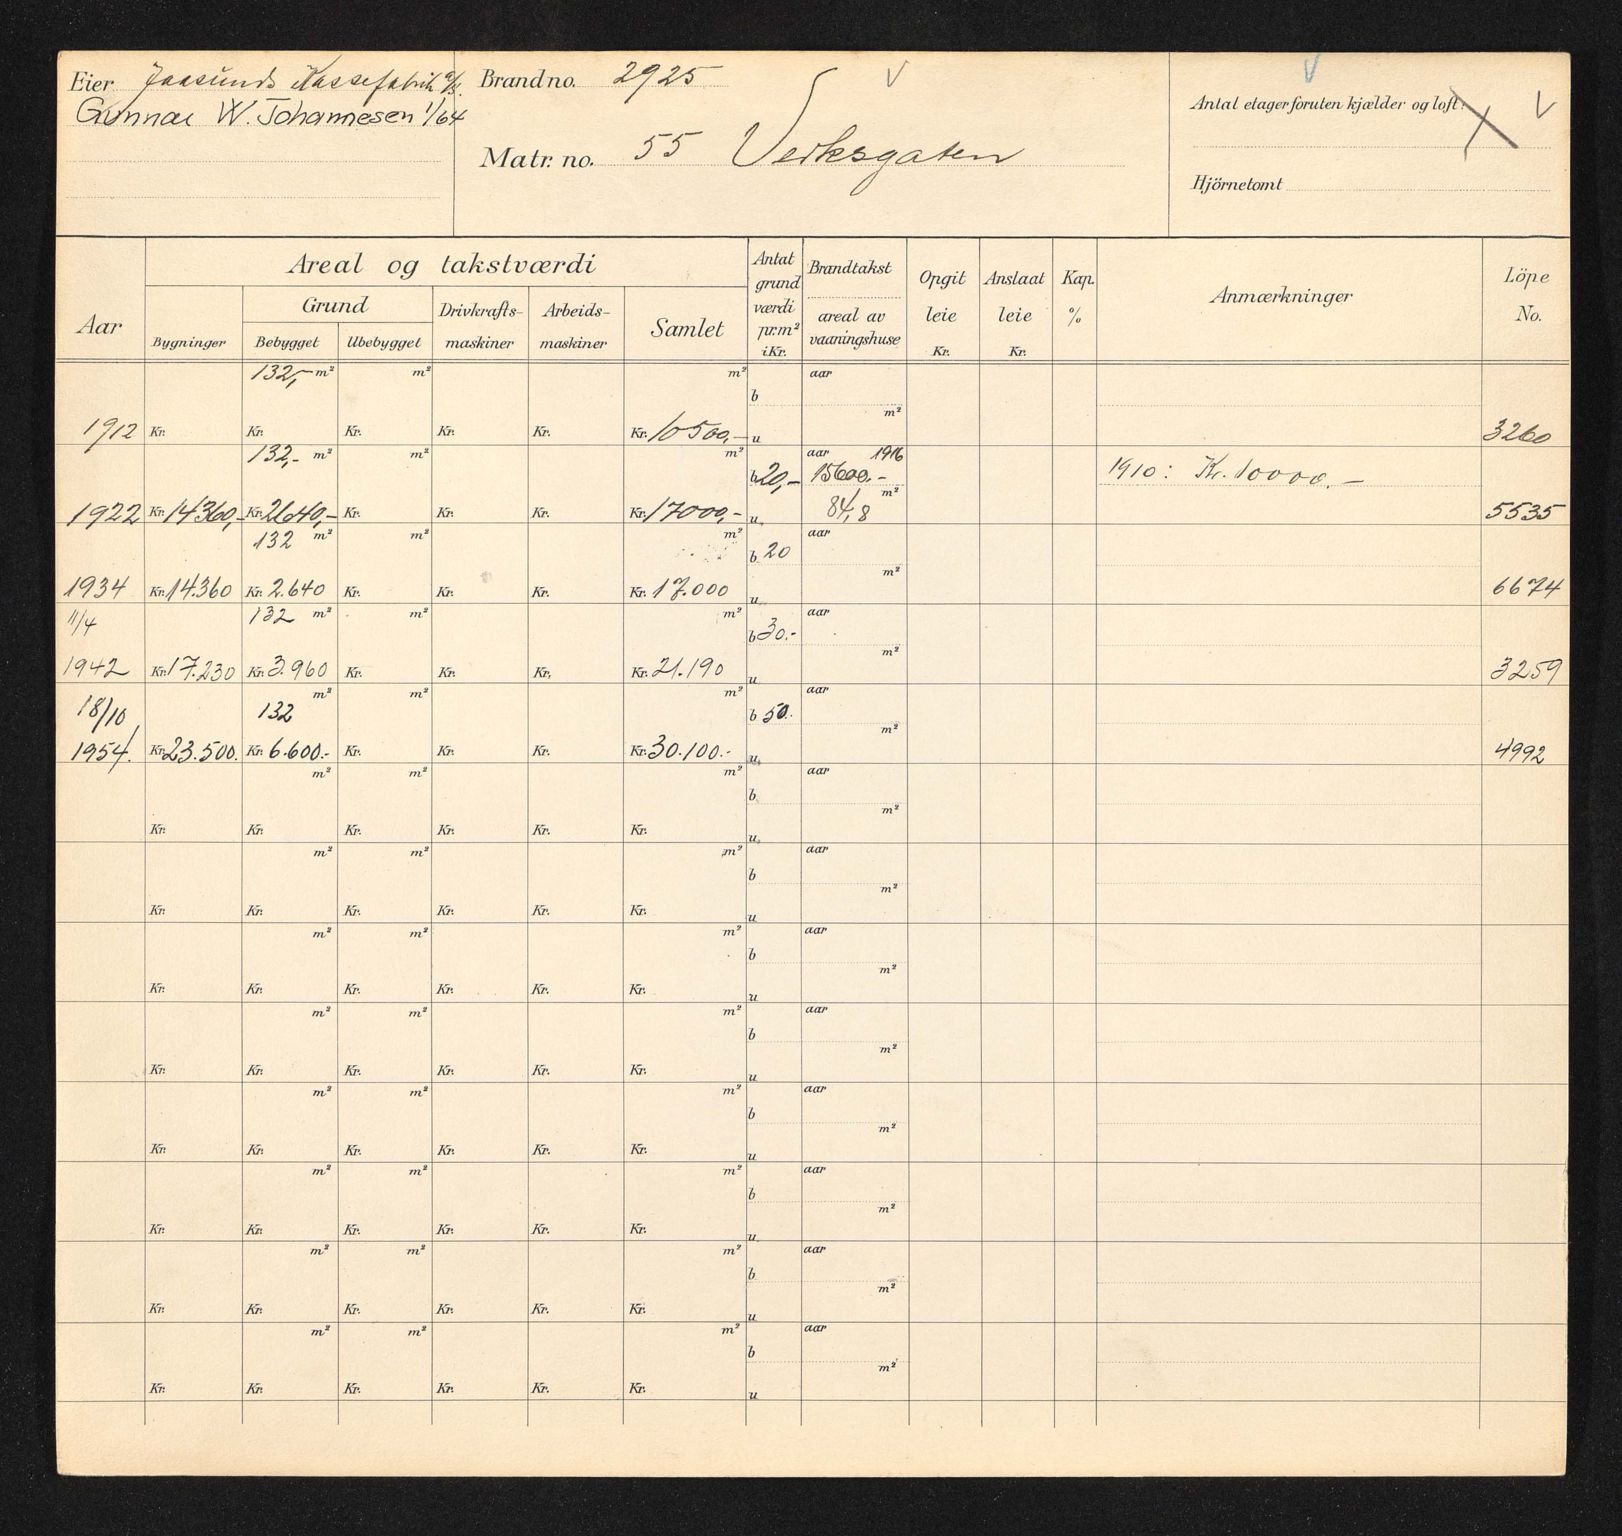 Eier Jaasunds Kassefabrik a/s.
Gunnar W. Johannesen 1/64
Brandno. 2925
Matr. no. 55 Verksgaten
Antal etager foruten kjælder og loft:
Hjörnetomt
Aar
Areal og takstværdi
Grund
Bygninger
Bebygget
Ubebygget
Drivkrafts-
maskiner
Arbeids-
maskiner
Samlet
Antat
grund
værdi
pr.m²
i Kr.
Brandtakst
areal av
vaaningshuse
Opgit
leie
Kr.
Anslaat
leie
Kr.
Kap.
%
Anmærkninger
Löpe
No.
132,- m² m² m² b aar
m²
1912 Kr. Kr. Kr. Kr. Kr. Kr. 10500,- u 3260
132,- m² m² m² b 20,- aar 1916
15600.- 1910: Kr. 10000.-
m²
1922 Kr. 14360,- Kr. 2640,- Kr. Kr. Kr. Kr. 17000,- u 84,8 5535
132 m² m² m² b 20 aar
m²
1934 Kr. 14.360 Kr. 2.640 Kr. Kr. Kr. Kr. 17.000 u 6674
11/4 132 m² m² m² b 30.- aar
m²
1942 Kr. 17.230 Kr. 3.960 Kr. Kr. Kr. Kr. 21.190 u 3259
18/10 132 m² m² m² b 50. aar
m²
1954. Kr. 23.500. Kr. 6.600.- Kr. Kr. Kr. Kr. 30.100.- u 4992
m² m² m² aar
b m²
Kr. Kr. Kr. Kr. Kr. Kr. u
m² m² m² aar
b m²
Kr. Kr. Kr. Kr. Kr. Kr. u
m² m² m² aar
b m²
Kr. Kr. Kr. Kr. Kr. Kr. u
m² m² m² aar
b m²
Kr. Kr. Kr. Kr. Kr. Kr. u
m² m² m² aar
b m²
Kr. Kr. Kr. Kr. Kr. Kr. u
m² m² m² aar
b m²
Kr. Kr. Kr. Kr. Kr. Kr. u
m² m² m² aar
b m²
Kr. Kr. Kr. Kr. Kr. Kr. u
m² m² m² aar
b m²
Kr. Kr. Kr. Kr. Kr. Kr. u